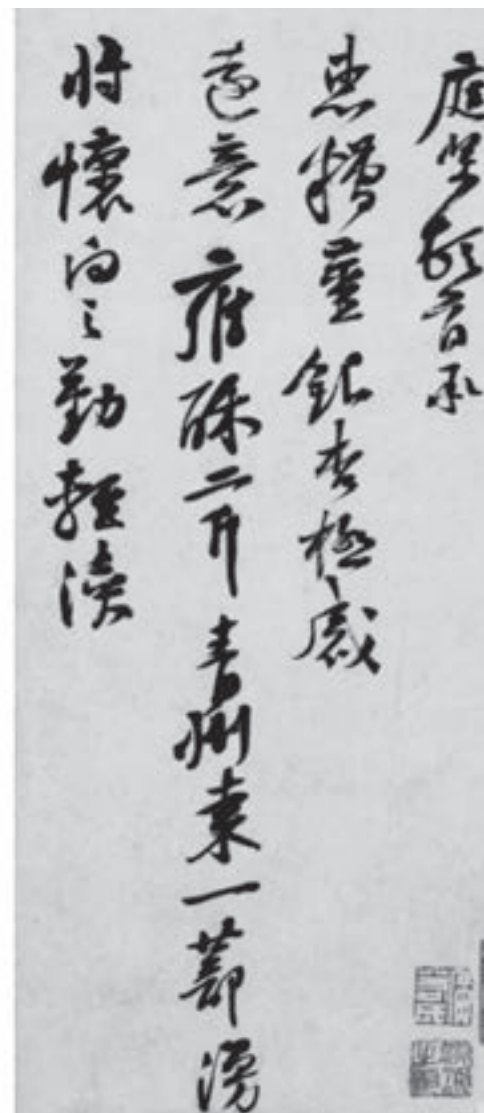 庭堅頓首承
惠糟薑銀杏極感
遠意雍酥二斤青州棗一蔀漫
將懷向之勤輕瀆